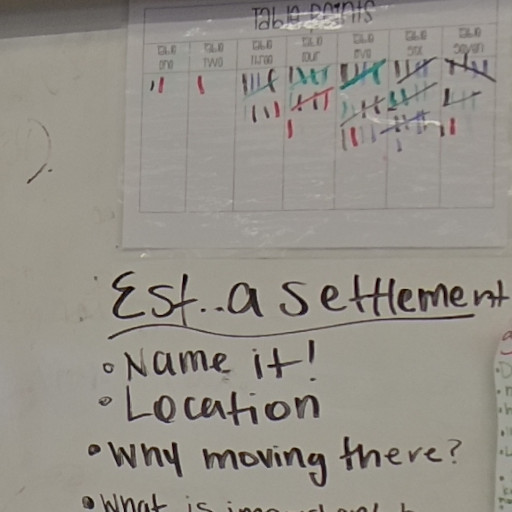 Table Points
Table one Table Two Table Three Table four Table five Table six Table Seven
Est..a Settlement
• Name it!
• Location
• Why moving there?
• What is